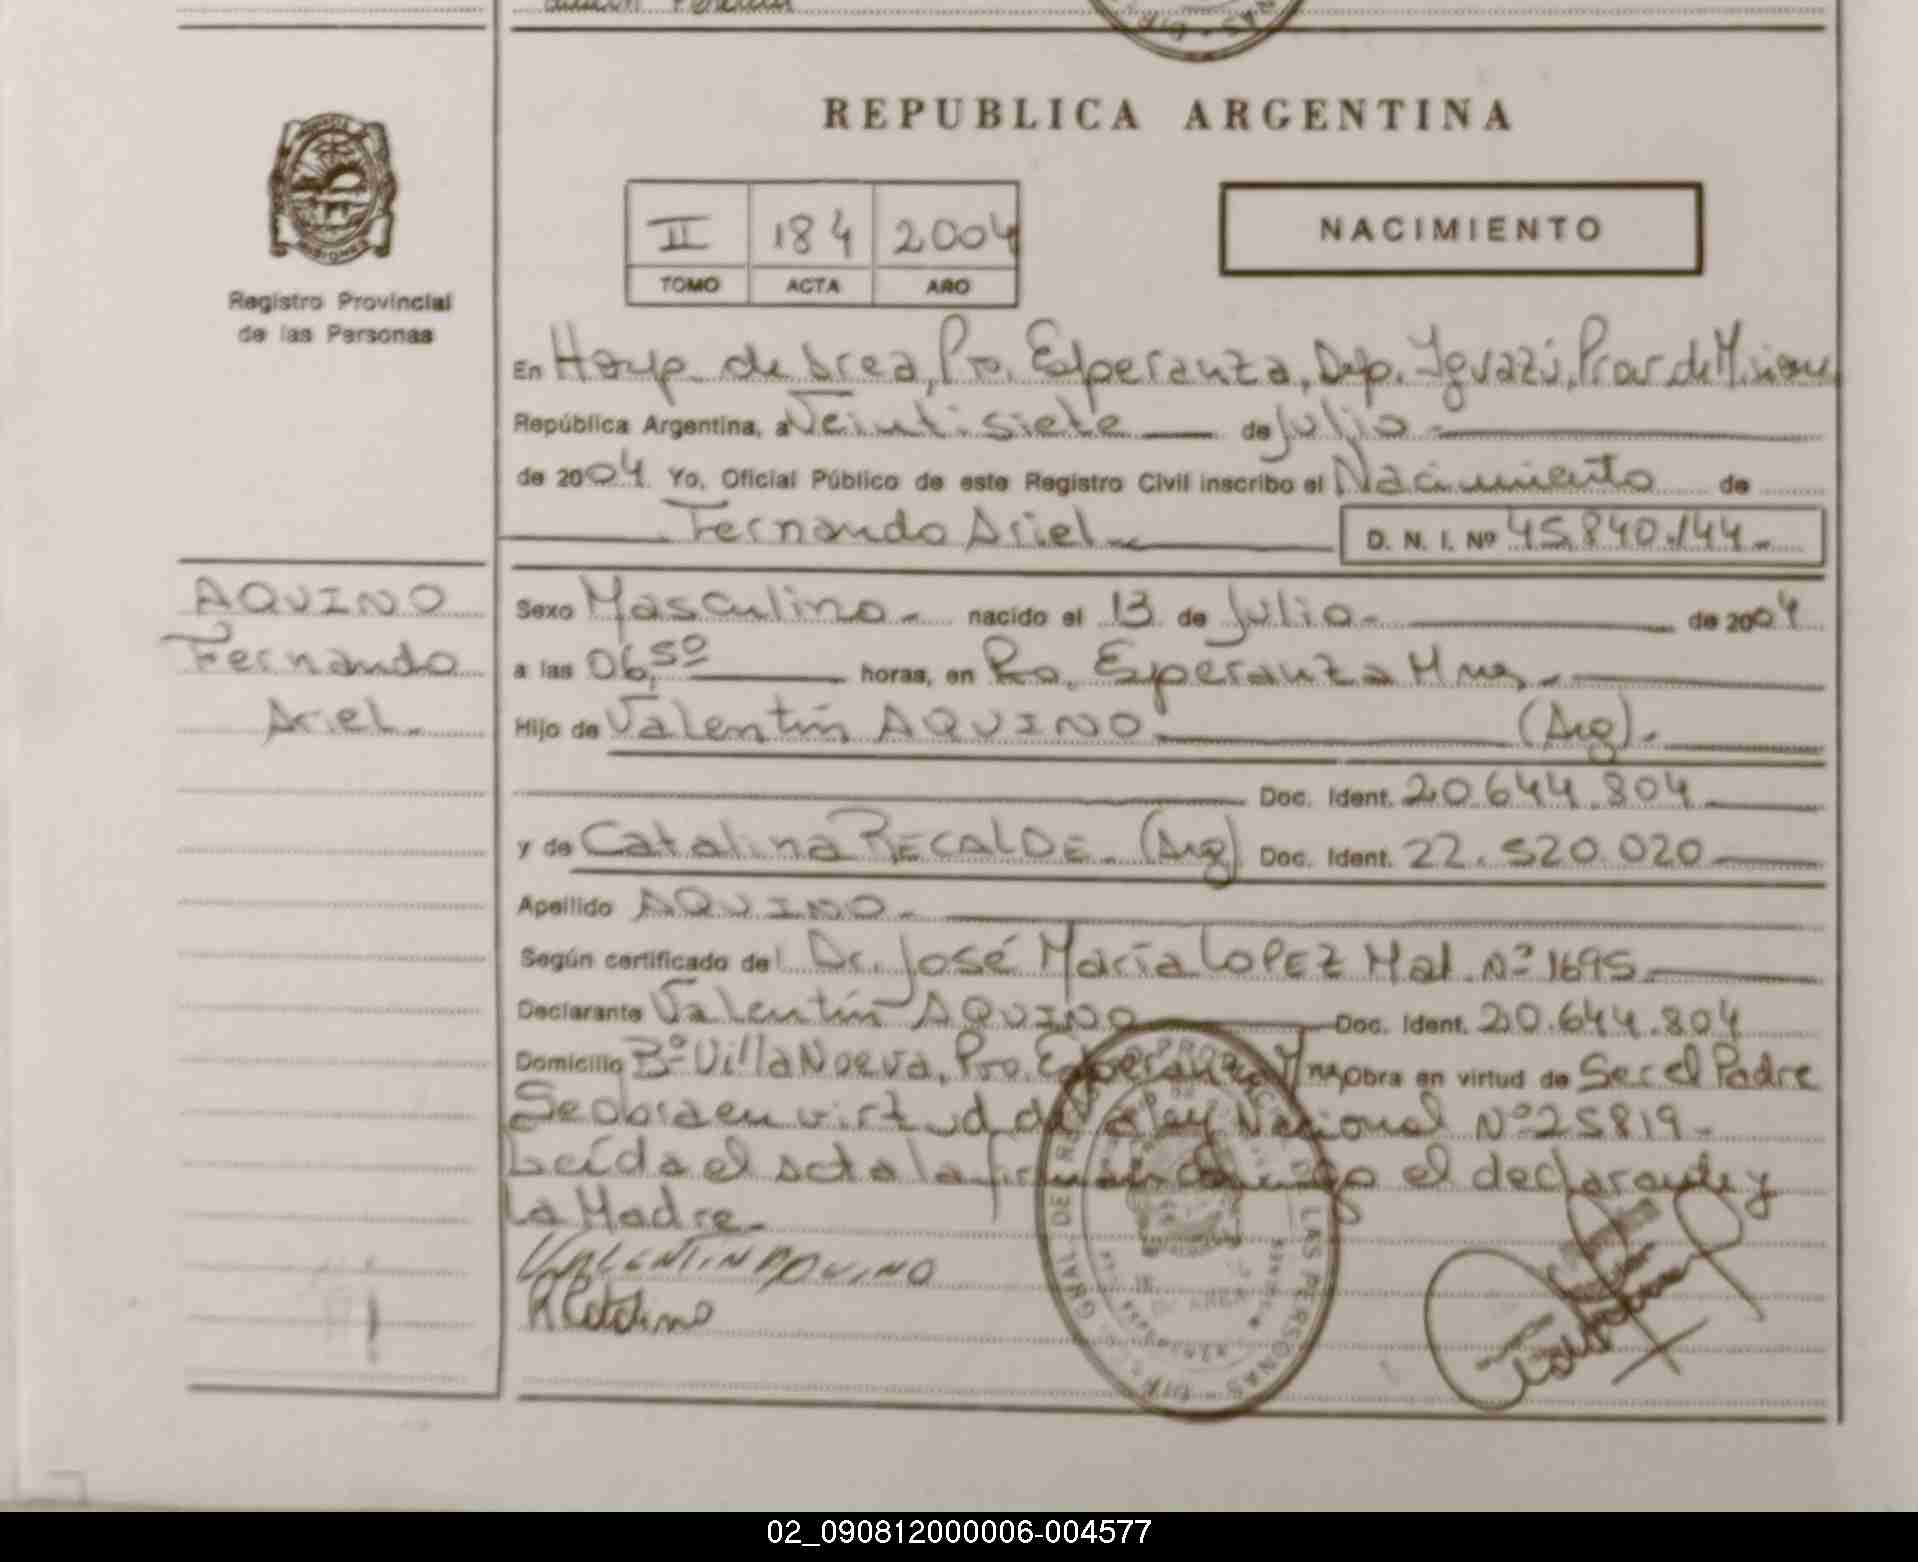 REPUBLICA ARGENTINA
II 184 2004
TOMO ACTA AÑO
NACIMIENTO
Registro Provincial
de las Personas
En Hosp. de Area, Pto. Esperanza, Dep. Iguazú, Prov. de Misiones
República Argentina, a Veintisiete de Julio
de 2004 Yo, Oficial Público de este Registro Civil inscribo el Nacimiento de
Fernando Ariel D. N. I. Nº 45.840.144
AQUINO
Fernando
Ariel
Sexo Masculino nacido el 13 de Julio de 2004
a las 06,50 horas, en Pto. Esperanza Mnes
Hijo de Valentín AQUINO (Arg)
Doc. Ident. 20.644.804
y de Catalina RECALDE (Arg) Doc. Ident. 22.520.020
Apellido AQUINO
Según certificado del Dr. José María LOPEZ Mat. Nº 1695
Declarante Valentín AQUINO Doc. Ident. 20.644.804
Domicilio Bº Villa Nueva, Pto. Esperanza Obra en virtud de Ser el Padre
Se obra en virtud de la Ley Nacional Nº 25819
Leída el acta la firman conmigo el declarante y
la Madre.
VALENTIN AQUINO
R Catalina
02_090812000006-004577